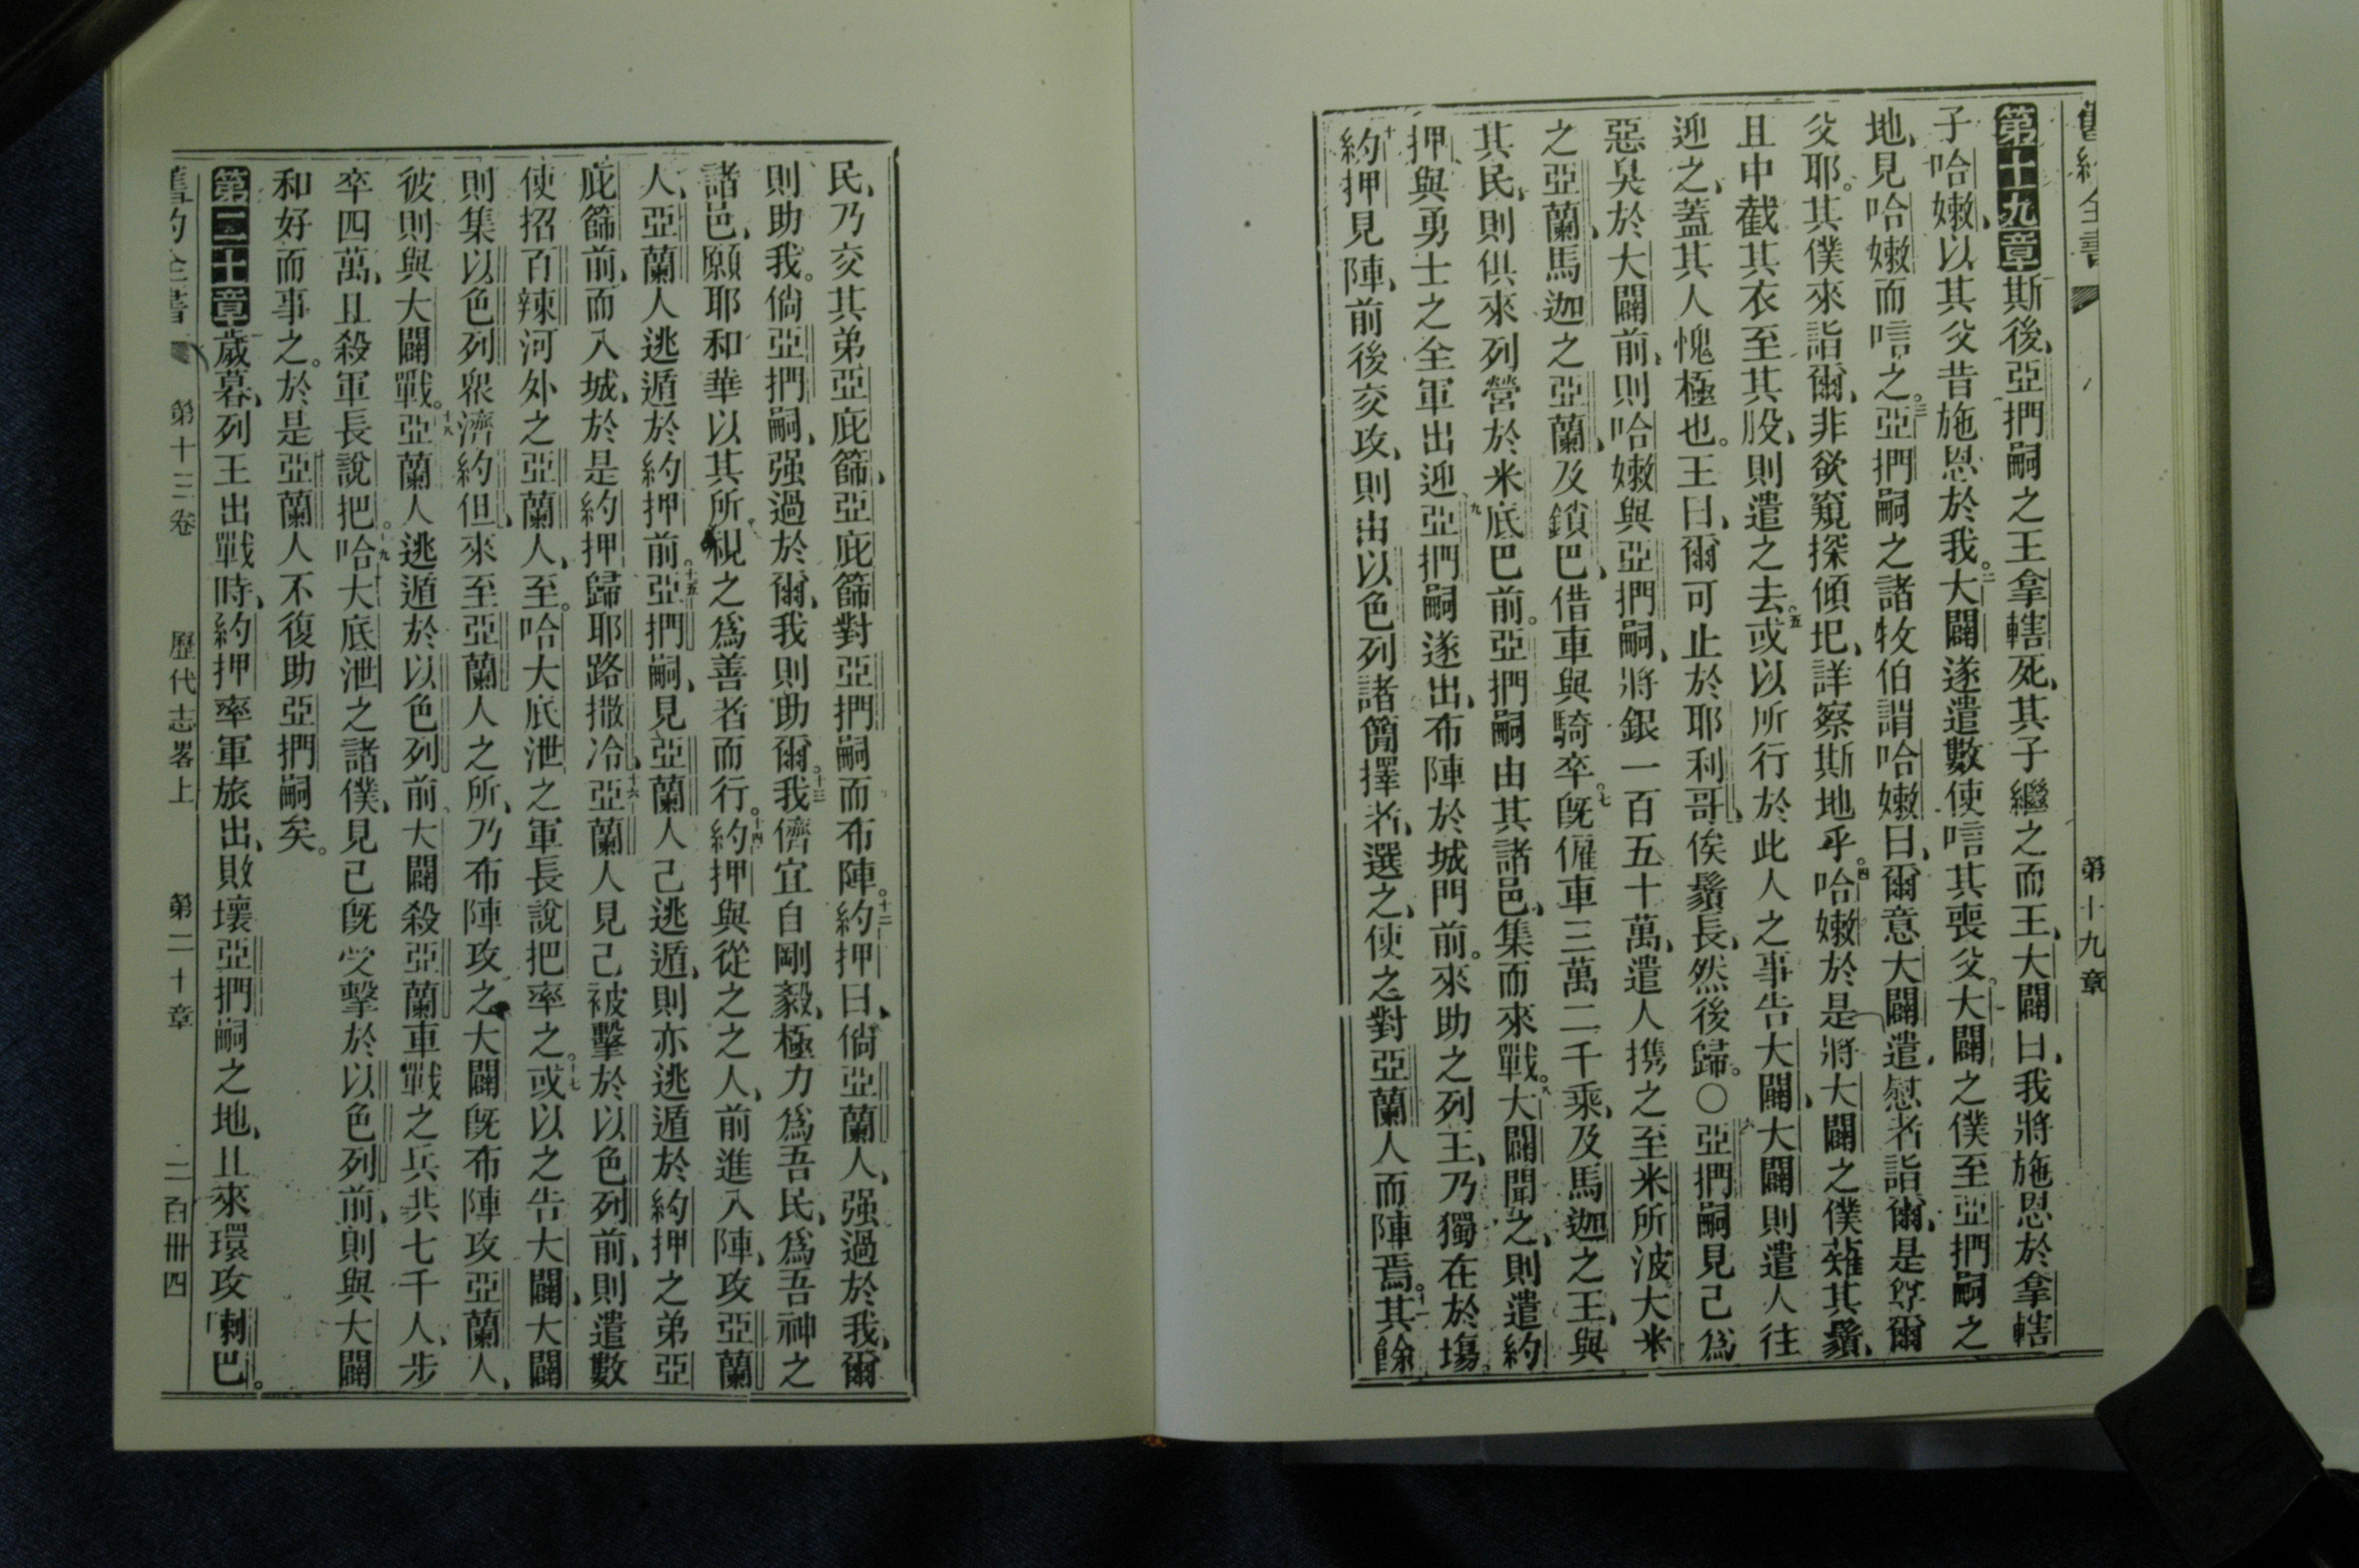 舊約全書 第十九章
第十九章斯後、亞捫嗣之王拿轄死、其子繼之而王、大闢曰、我將施恩於拿轄
子哈嫩、以其父昔施恩於我。二大闢遂遣數使唁其喪父。大闢之僕至亞捫嗣之
地、見哈嫩而唁之。三亞捫嗣之諸牧伯謂哈嫩曰、爾意大闢遣慰者詣爾、是尊爾
父耶。其僕來詣爾、非欲窺探傾圯、詳察斯地乎。四哈嫩於是將大闢之僕薙其鬚、
且中截其衣至其股、則遣之去。五或以所行於此人之事告大闢、大闢則遣人往
迎之、蓋其人愧極也。王曰、爾可止於耶利哥、俟鬚長、然後歸。〇六亞捫嗣見己爲
惡臭於大闢前、則哈嫩與亞捫嗣、將銀一百五十萬、遣人携之至米所波大米
之亞蘭、馬迦之亞蘭、及鎖巴、借車與騎卒。七旣僱車三萬二千乘、及馬迦之王、與
其民、則俱來列營於米底巴前。亞捫嗣由其諸邑、集而來戰。八大闢聞之、則遣約
押、與勇士之全軍出迎、九亞捫嗣遂出、布陣於城門前。來助之列王、乃獨在於塲。
十約押見陣、前後交攻、則由以色列諸簡擇者、選之、使之對亞蘭人而陣焉。十一其餘
民、乃交其弟亞庇篩、亞庇篩對亞捫嗣而布陣。十二約押曰、倘亞蘭人、强過於我、爾
則助我。倘亞捫嗣、强過於爾、我則助爾。十三我儕宜自剛毅、極力爲吾民、爲吾神之
諸邑、願耶和華以其所視之爲善者而行。十四約押與從之之人、前進入陣、攻亞蘭
人、亞蘭人逃遁於約押前。十五亞捫嗣、見亞蘭人己逃遁、則亦逃遁於約押之弟亞
庇篩前、而入城、於是約押歸耶路撒冷。十六亞蘭人見己被擊於以色列前、則遣數
使招百辣河外之亞蘭人、至。哈大底泄之軍長說把率之。十七或以之告大闢、大闢
則集以色列衆濟約但、來至亞蘭人之所、乃布陣攻之大闢旣布陣攻亞蘭人、
彼則與大闢戰。十八亞蘭人逃遁於以色列前、大闢殺亞蘭車戰之兵共七千人、步
卒四萬、且殺軍長說把。十九哈大底泄之諸僕、見己旣受擊於以色列前、則與大闢
和好而事之。於是亞蘭人不復助亞捫嗣矣。
第二十章歲暮、列王出戰時、約押率軍旅出、敗壞亞捫嗣之地、且來環攻喇巴。
舊約全書 第十三卷 歷代志畧上 第二十章 二百卌四